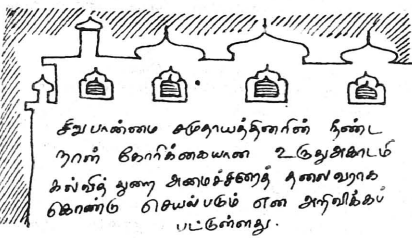 சிறுபான்மை சமுதாயத்தினரின் நீண்ட
நாள் கோரிக்கையான உருதுஅகாடமி
கல்வித்துறை அமைச்சரைத் தலைவராக
கொண்டு செயல்படும் என அறிவிக்கப்
பட்டுள்ளது.